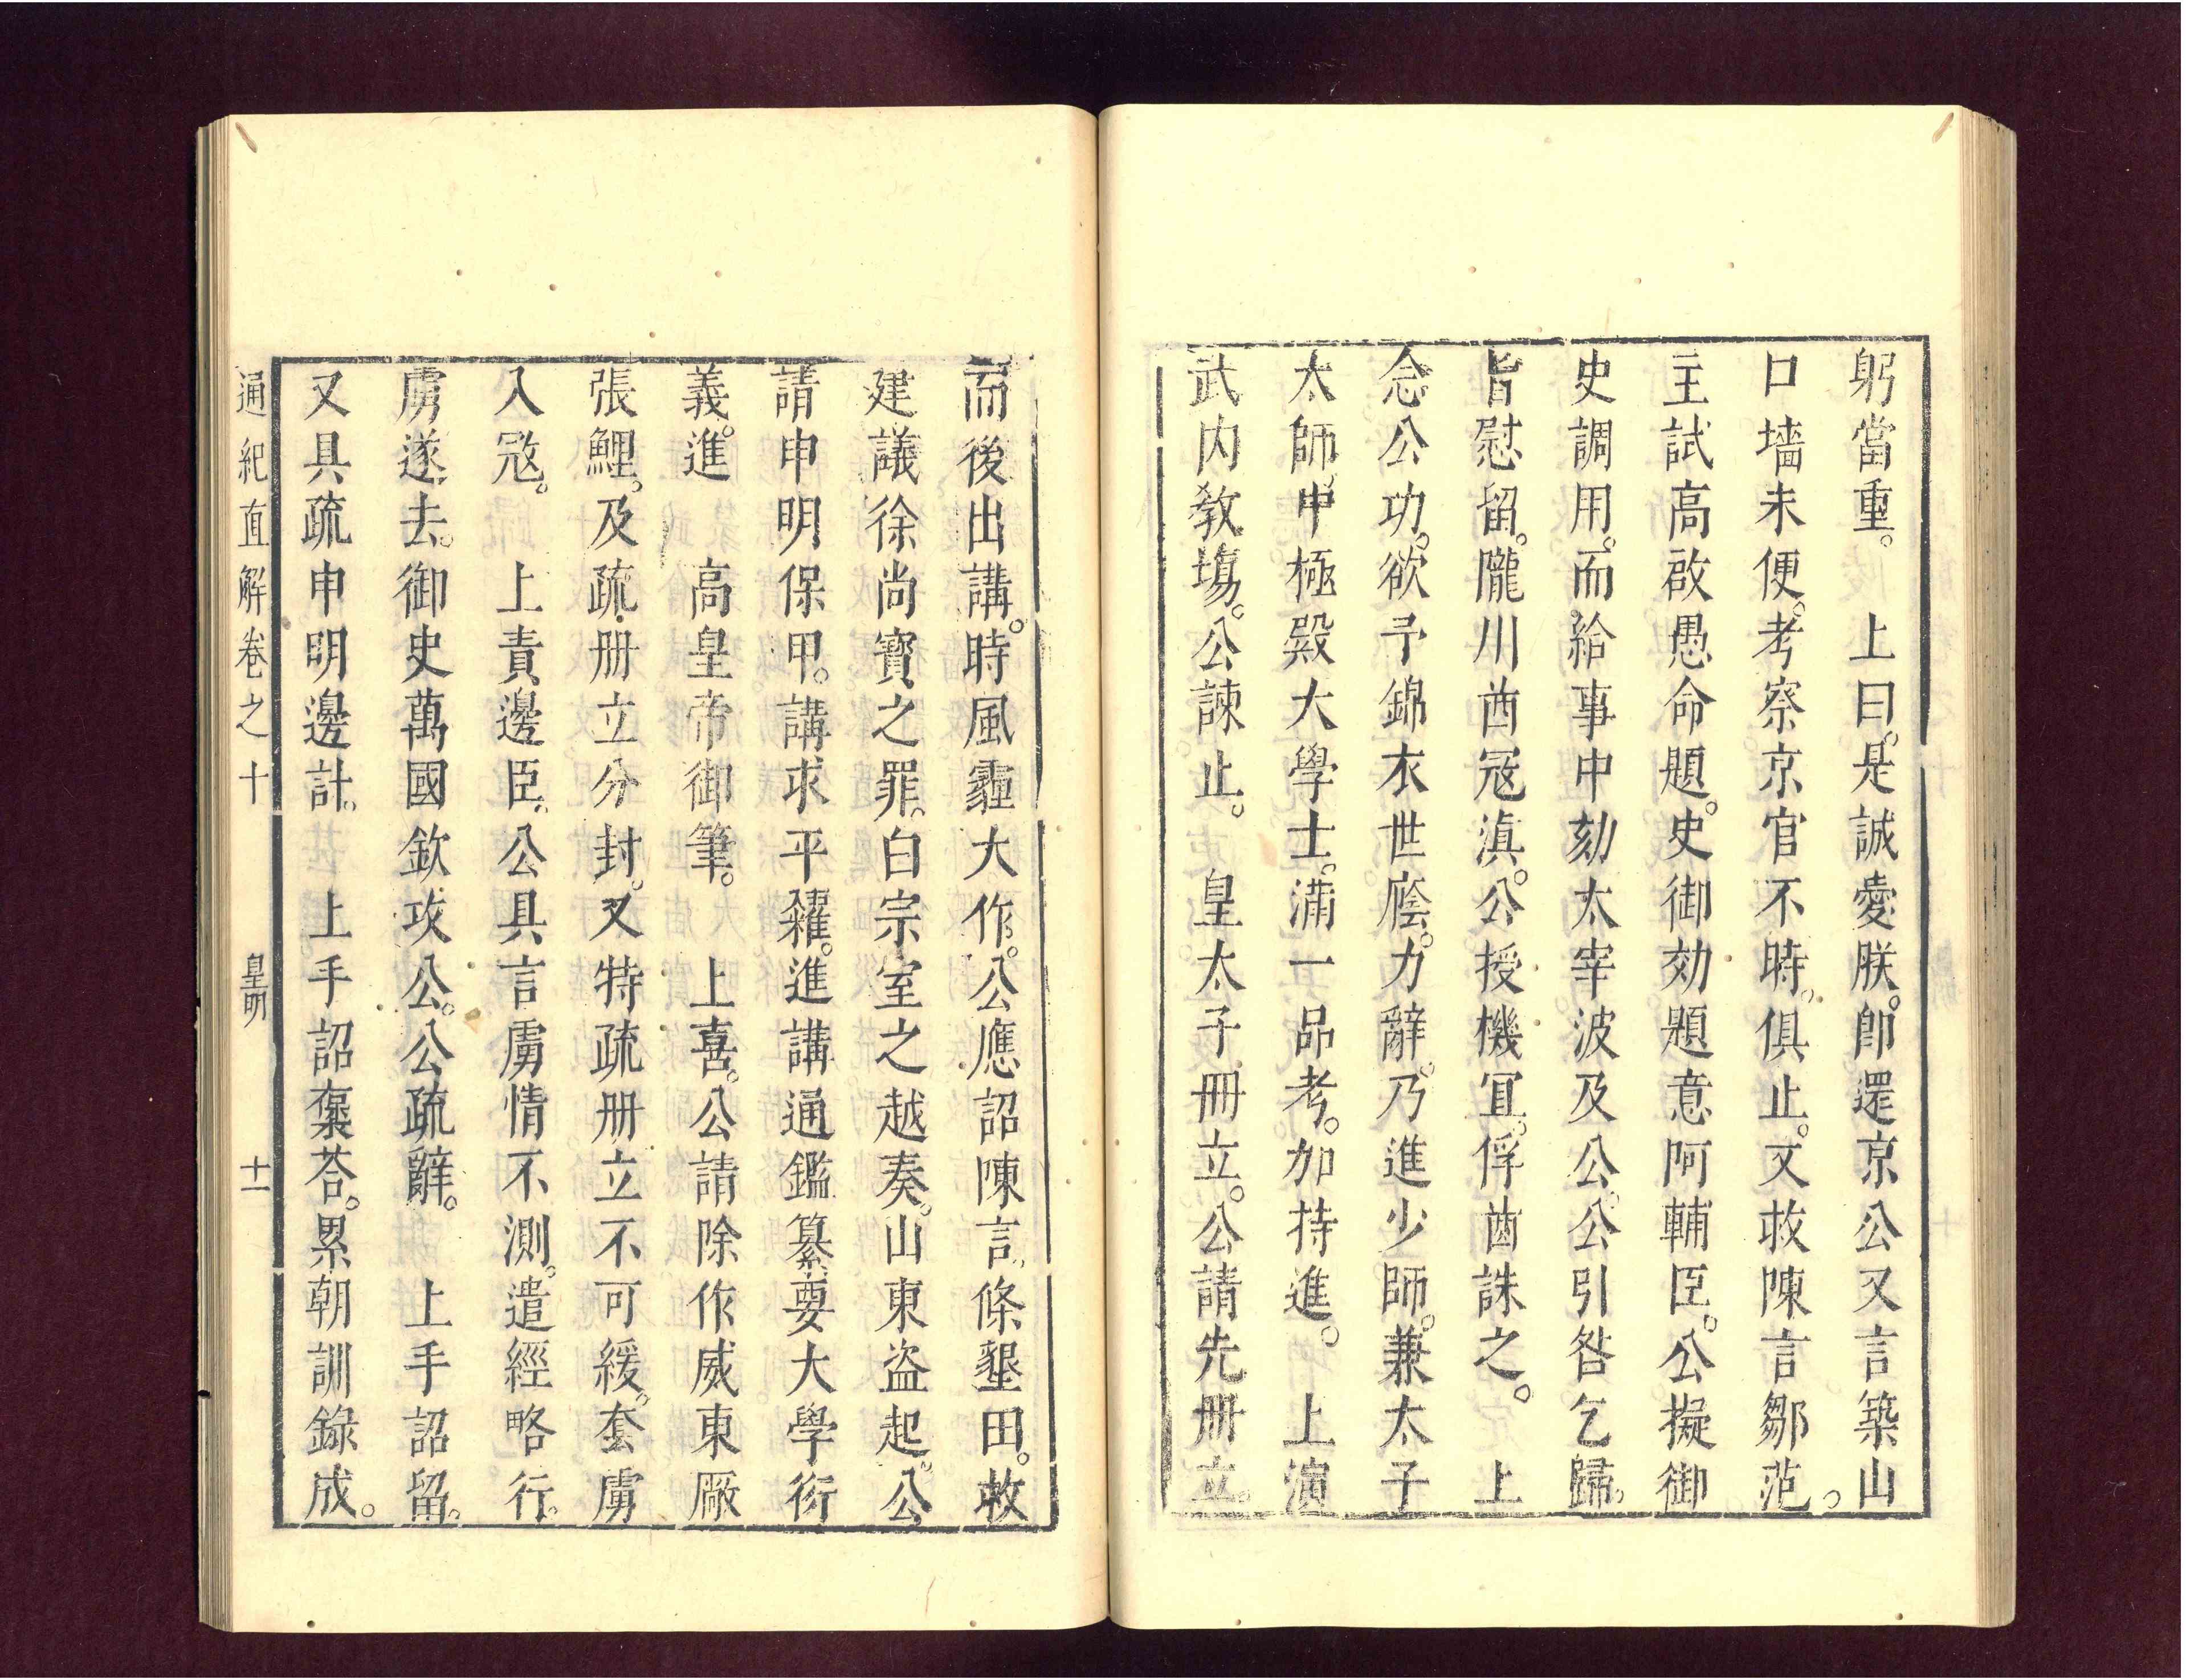 躬當重。　上曰。是誠愛朕。卽還京公又言築山
口墻未便。考察京官不時。俱止。又救陳言鄒范。
主試高啟愚命題。史御劾題意阿輔臣。公擬御
史調用。而給事中劾太宰波及公。公引咎乞歸。
旨慰留。隴川酋寇滇。公授機宜。俘酋誅之。　上
念公功。欲予錦衣世廕。力辭。乃進少師。兼太子
太師。中極殿大學士。滿一品考。加特進。　上演
武內敎塲。公諫止。　皇太子冊立。公請先冊立。
而後出講。時風霾大作。公應詔陳言。條墾田。救
建議徐尚寶之罪。白宗室之越奏。山東盜起。公
請申明保甲。講求平糴。進講通鑑纂要大學衍
義。進　高皇帝御筆。　上喜。公請除作威東厰
張鯉。及疏册立分封。又特疏册立不可緩。套虜
入寇。　上責邊臣。公具言虜情不測。遣經略行。
虜遂去。御史萬國欽攻公。公疏辭。　上手詔留。
又具疏申明邊計。　上手詔褒荅。累朝訓錄成。
通紀直解卷之十　皇明　十一